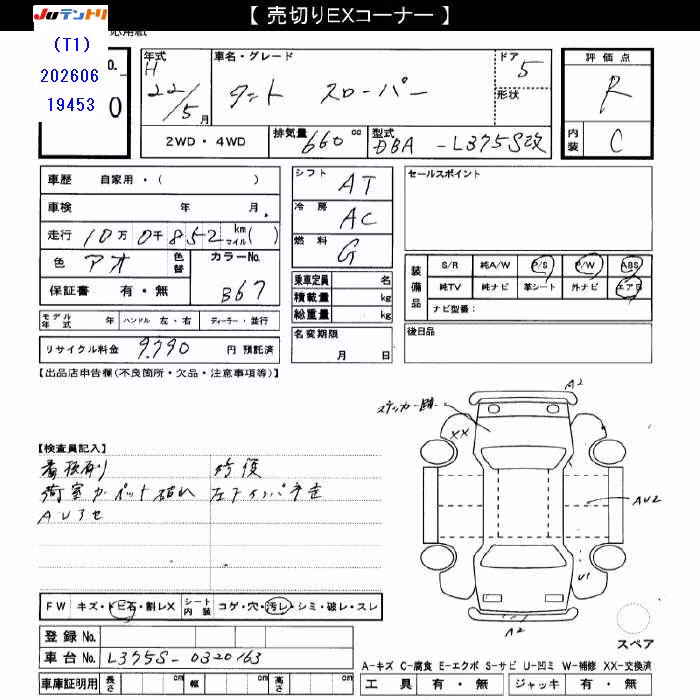 【 売切りEXコーナー 】
JUテントリ
(T1)
202606
19453
No.
0
年式
H
22/5月
車名・グレード
タント スローパー
ドア
5
形状
評価点
R
内装
C
2WD・4WD
排気量 660 cc
型式 DBA - L375S改
車歴 自家用・( )
車検 年 月
走行 10万0千852 km マイル( )
色 アオ
色替
カラーNo.
B67
保証書 有・無
シフト AT
冷房 AC
燃料 G
乗車定員 名
積載量 kg
総重量 kg
セールスポイント
装備品
S/R 純A/W P/S P/W ABS
純TV 純ナビ 革シート 外ナビ エアB
ナビ型番:
モデル年式 年 ハンドル 左・右 ディーラー・並行
リサイクル料金 9,790 円 預託済
名変期限
月 日
後日品
【出品店申告欄(不良箇所・欠品・注意事項等)】
【検査員記入】
荷室カーペット破れ
FW キズ・トビ石・割レX シート内装 コゲ・穴・汚レ・シミ・破レ・スレ
登録No.
車台No. L375S-0320163
車庫証明用 長さ cm 幅 cm 高さ cm
A2
ステッカー跡
XX
AU2
U1
A2
スペア
A-キズ C-腐食 E-エクボ S-サビ U-凹ミ W-補修 XX-交換済
工具 有・無 ジャッキ 有・無